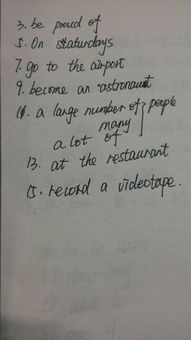 3. be proud of
5. On staturdays
7. go to the airport
9. become an astronaut
11. a large number of people
many
a lot of
13. at the restaurant
15. record a videotape.